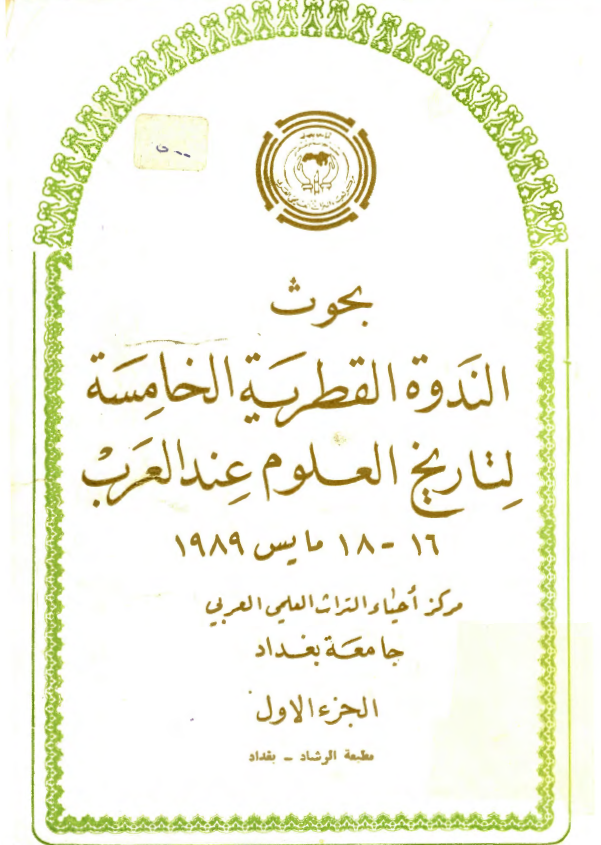 ٥٠٠
بحوث
الندوة القطرية الخامسة
لتاريخ العلوم عند العرب
١٦ - ١٨ مايس ١٩٨٩
مركز أحياء التراث العلمي العربي
جامعة بغداد
الجزء الاول
مطبعة الرشاد - بغداد